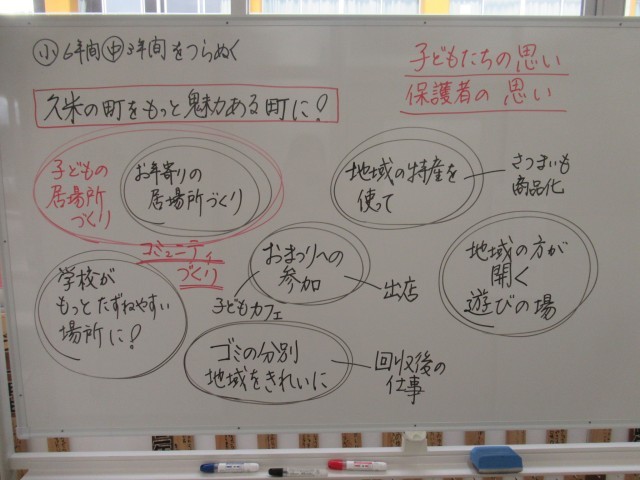 小6年間中3年間をつらぬく
子どもたちの思い
保護者の思い
久米の町をもっと魅力ある町に!
子どもの
居場所
づくり
お年寄りの
居場所づくり
地域の特産を
使て
さつまいも
商品化
コミュニティ
づくり
おまつりへの
参加
出店
子どもカフェ
地域の方が
開く
遊びの場
学校が
もっとたずねやすい
場所に!
ゴミの分別
地域をきれいに
回収後の
仕事